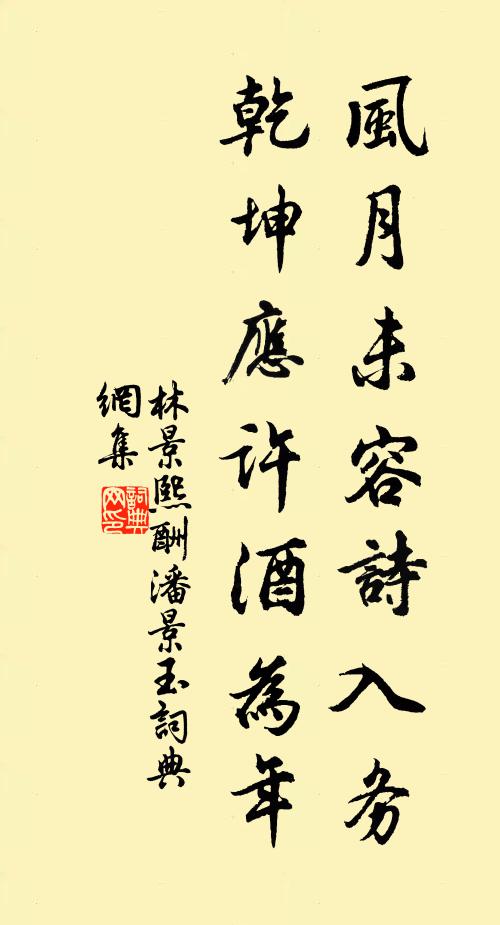 風月未容詩入务
乾坤應許酒為年
林景熙酬潘景玉詞典
網集
詞典网印